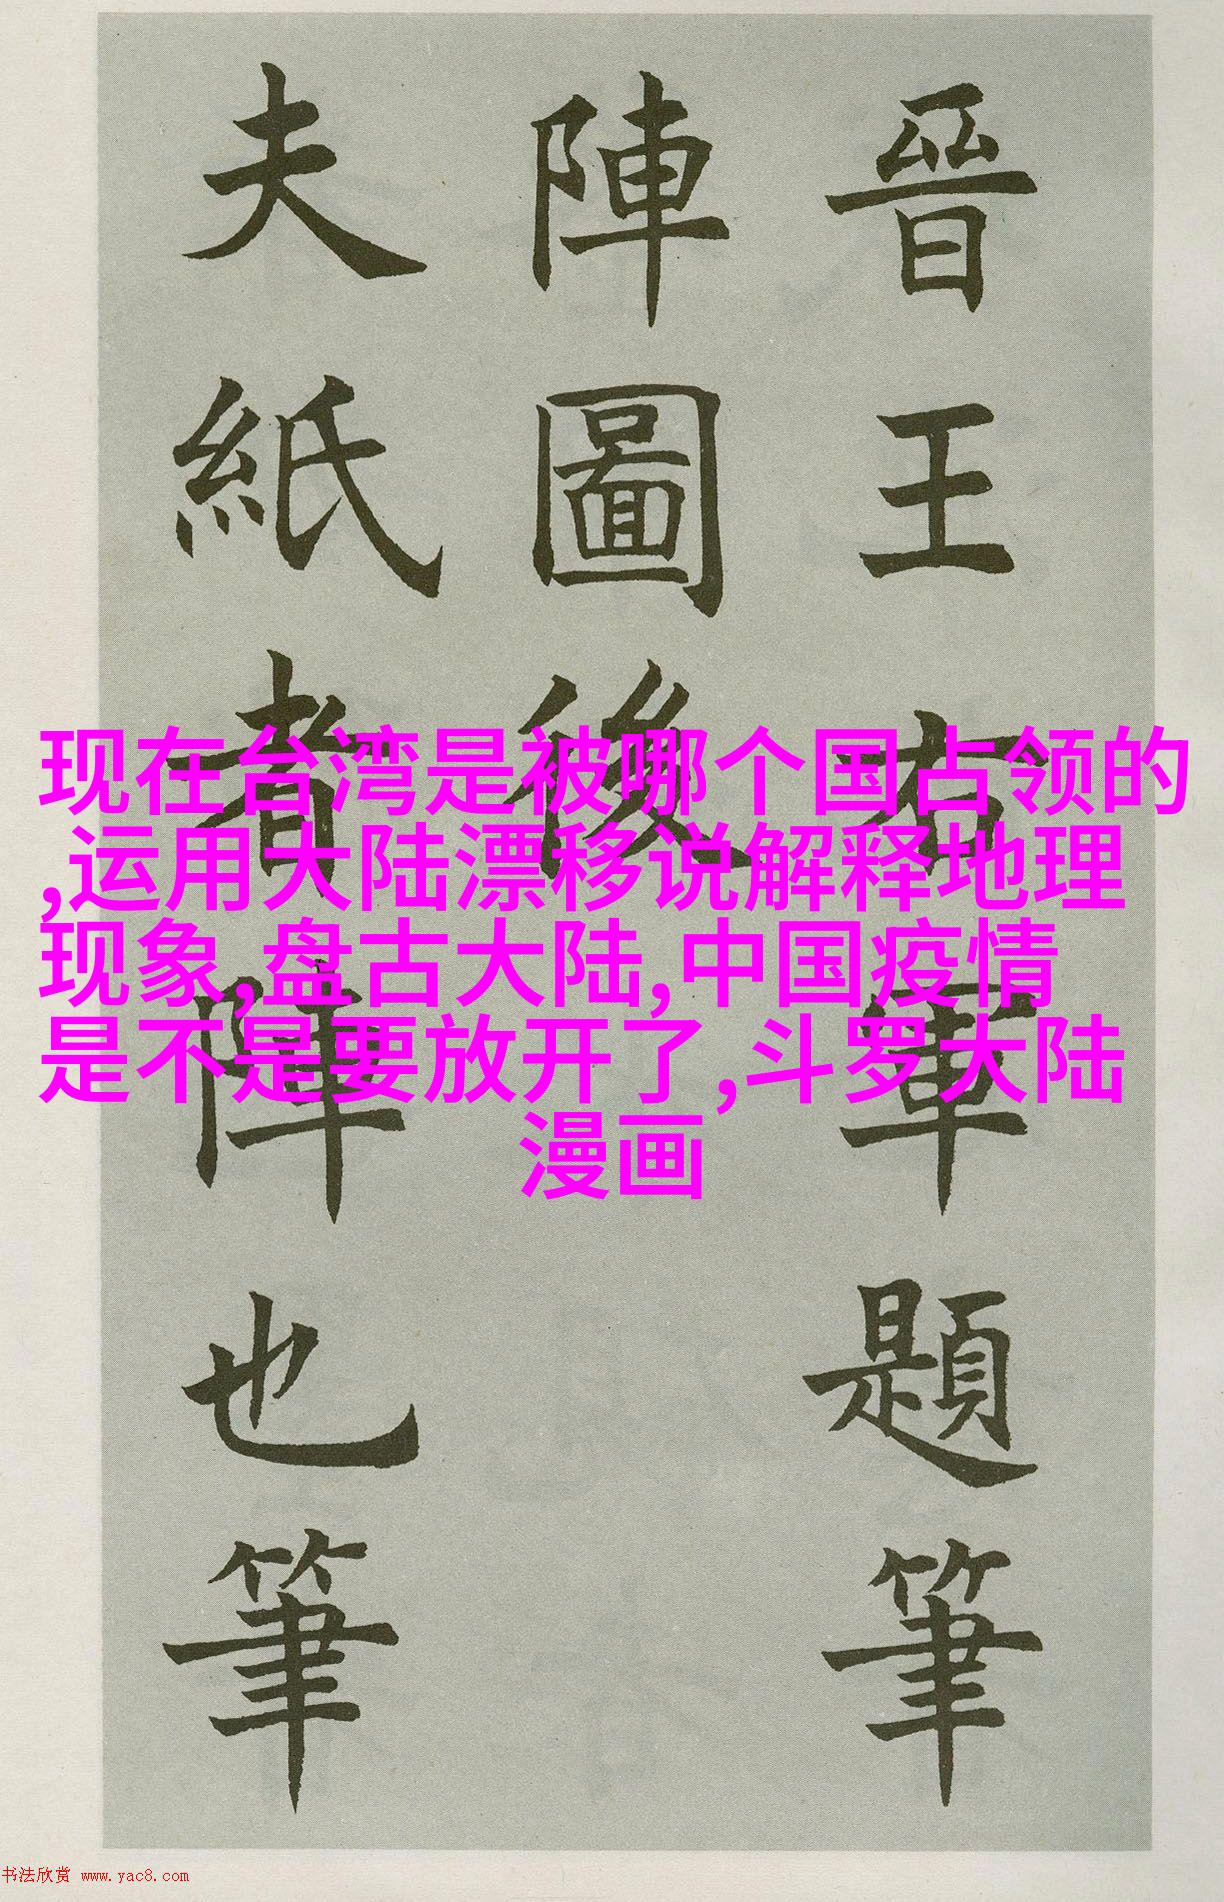 晉王右軍題筆
陣圖後
夫紙者陣也筆
现在台湾是被哪个国占领的
,运用大陆漂移说解释地理
现象,盘古大陆,中国疫情
是不是要放开了,斗罗大陆
漫画
书法欣赏 www.yac8.com